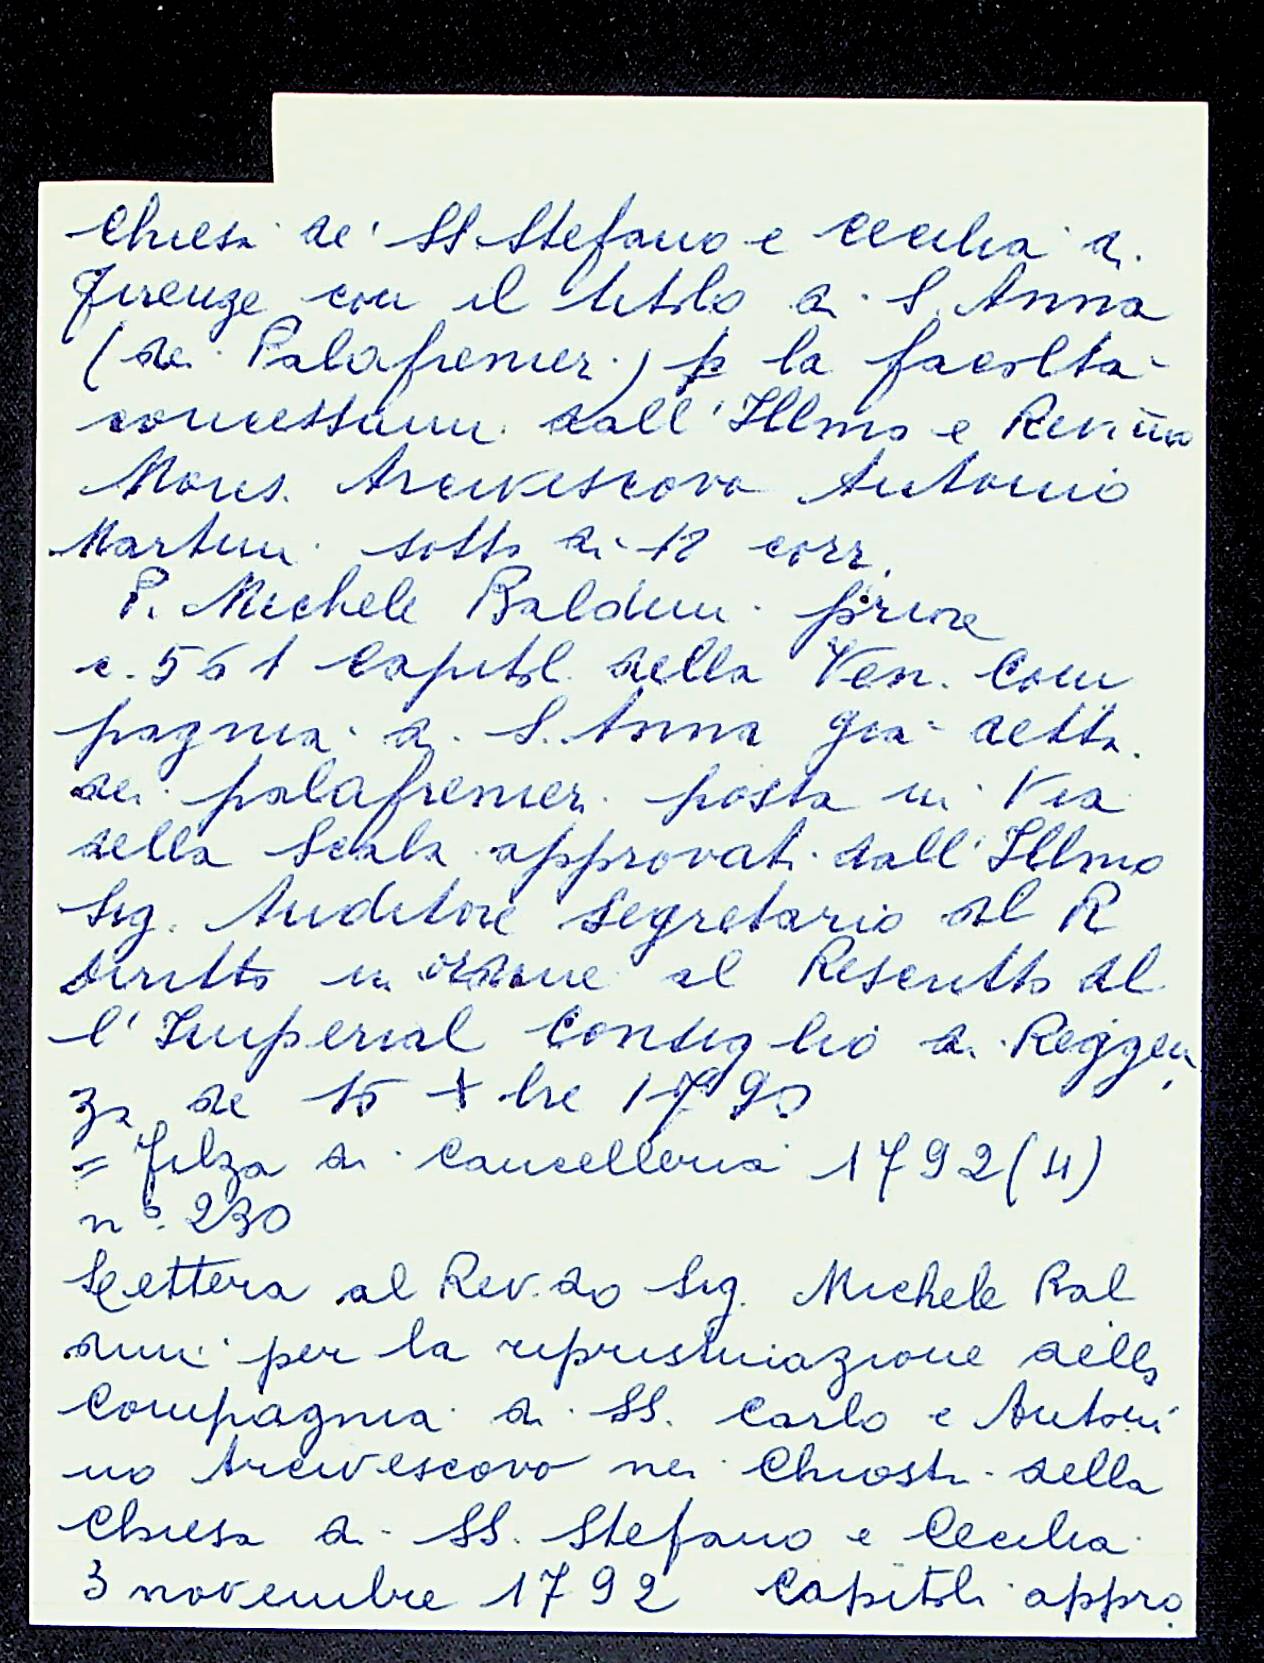 Chiesa de' SS Stefano e Cecilia di
Firenze con il titolo di S. Anna
(dei Palafrenieri) p la facoltà
concessami dall'Illmo e Revmo
Mons. Arcivescovo Antonio
Martini sotto di 12 corr.
P. Michele Baldini priore
c. 561 Capitoli della Ven. Com
pagnia di S. Anna già detta
dei palafrenieri posta in Via
della Scala approvati dall'Illmo
Sig. Auditore Segretario del R
diritto in ordine al Rescritto del
l'Imperial Consiglio di Reggen
za de 15 Xbre 1790
= Filza di Cancelleria 1792 (4)
n°. 230
Lettera al Rev.do Sig. Michele Bal
dini per la ripristinazione della
Compagnia di SS. Carlo e Antoni
no Arcivescovo nei Chiostri della
Chiesa di SS. Stefano e Cecilia
3 novembre 1792 Capitoli appro